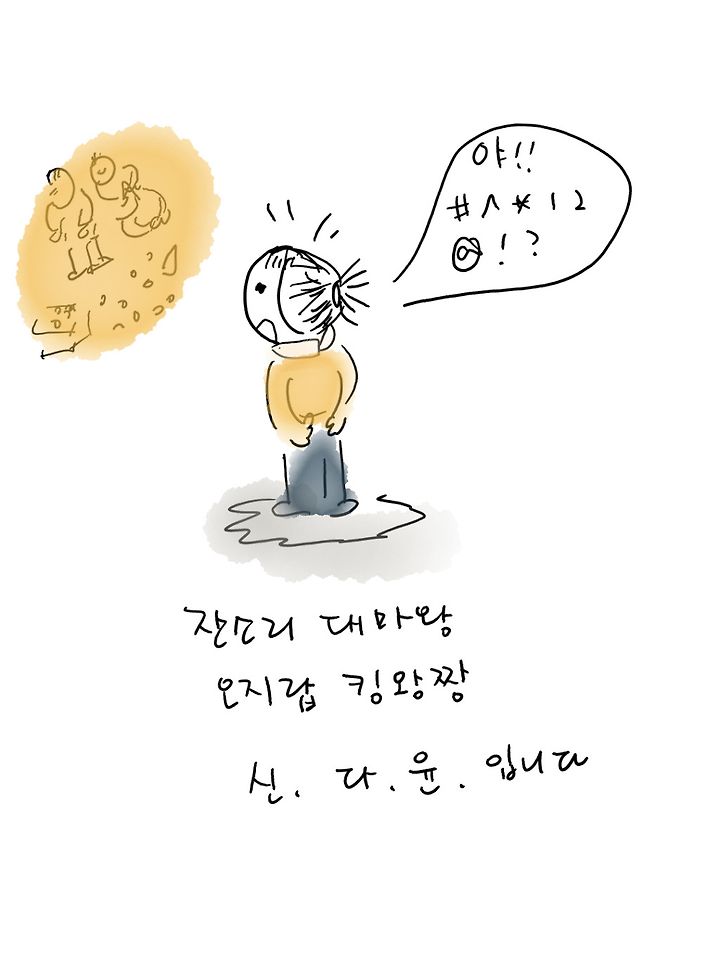 야!!
#^*12
@!?
잔소리 대마왕
오지랍 킹왕짱
신. 다. 윤. 입니다